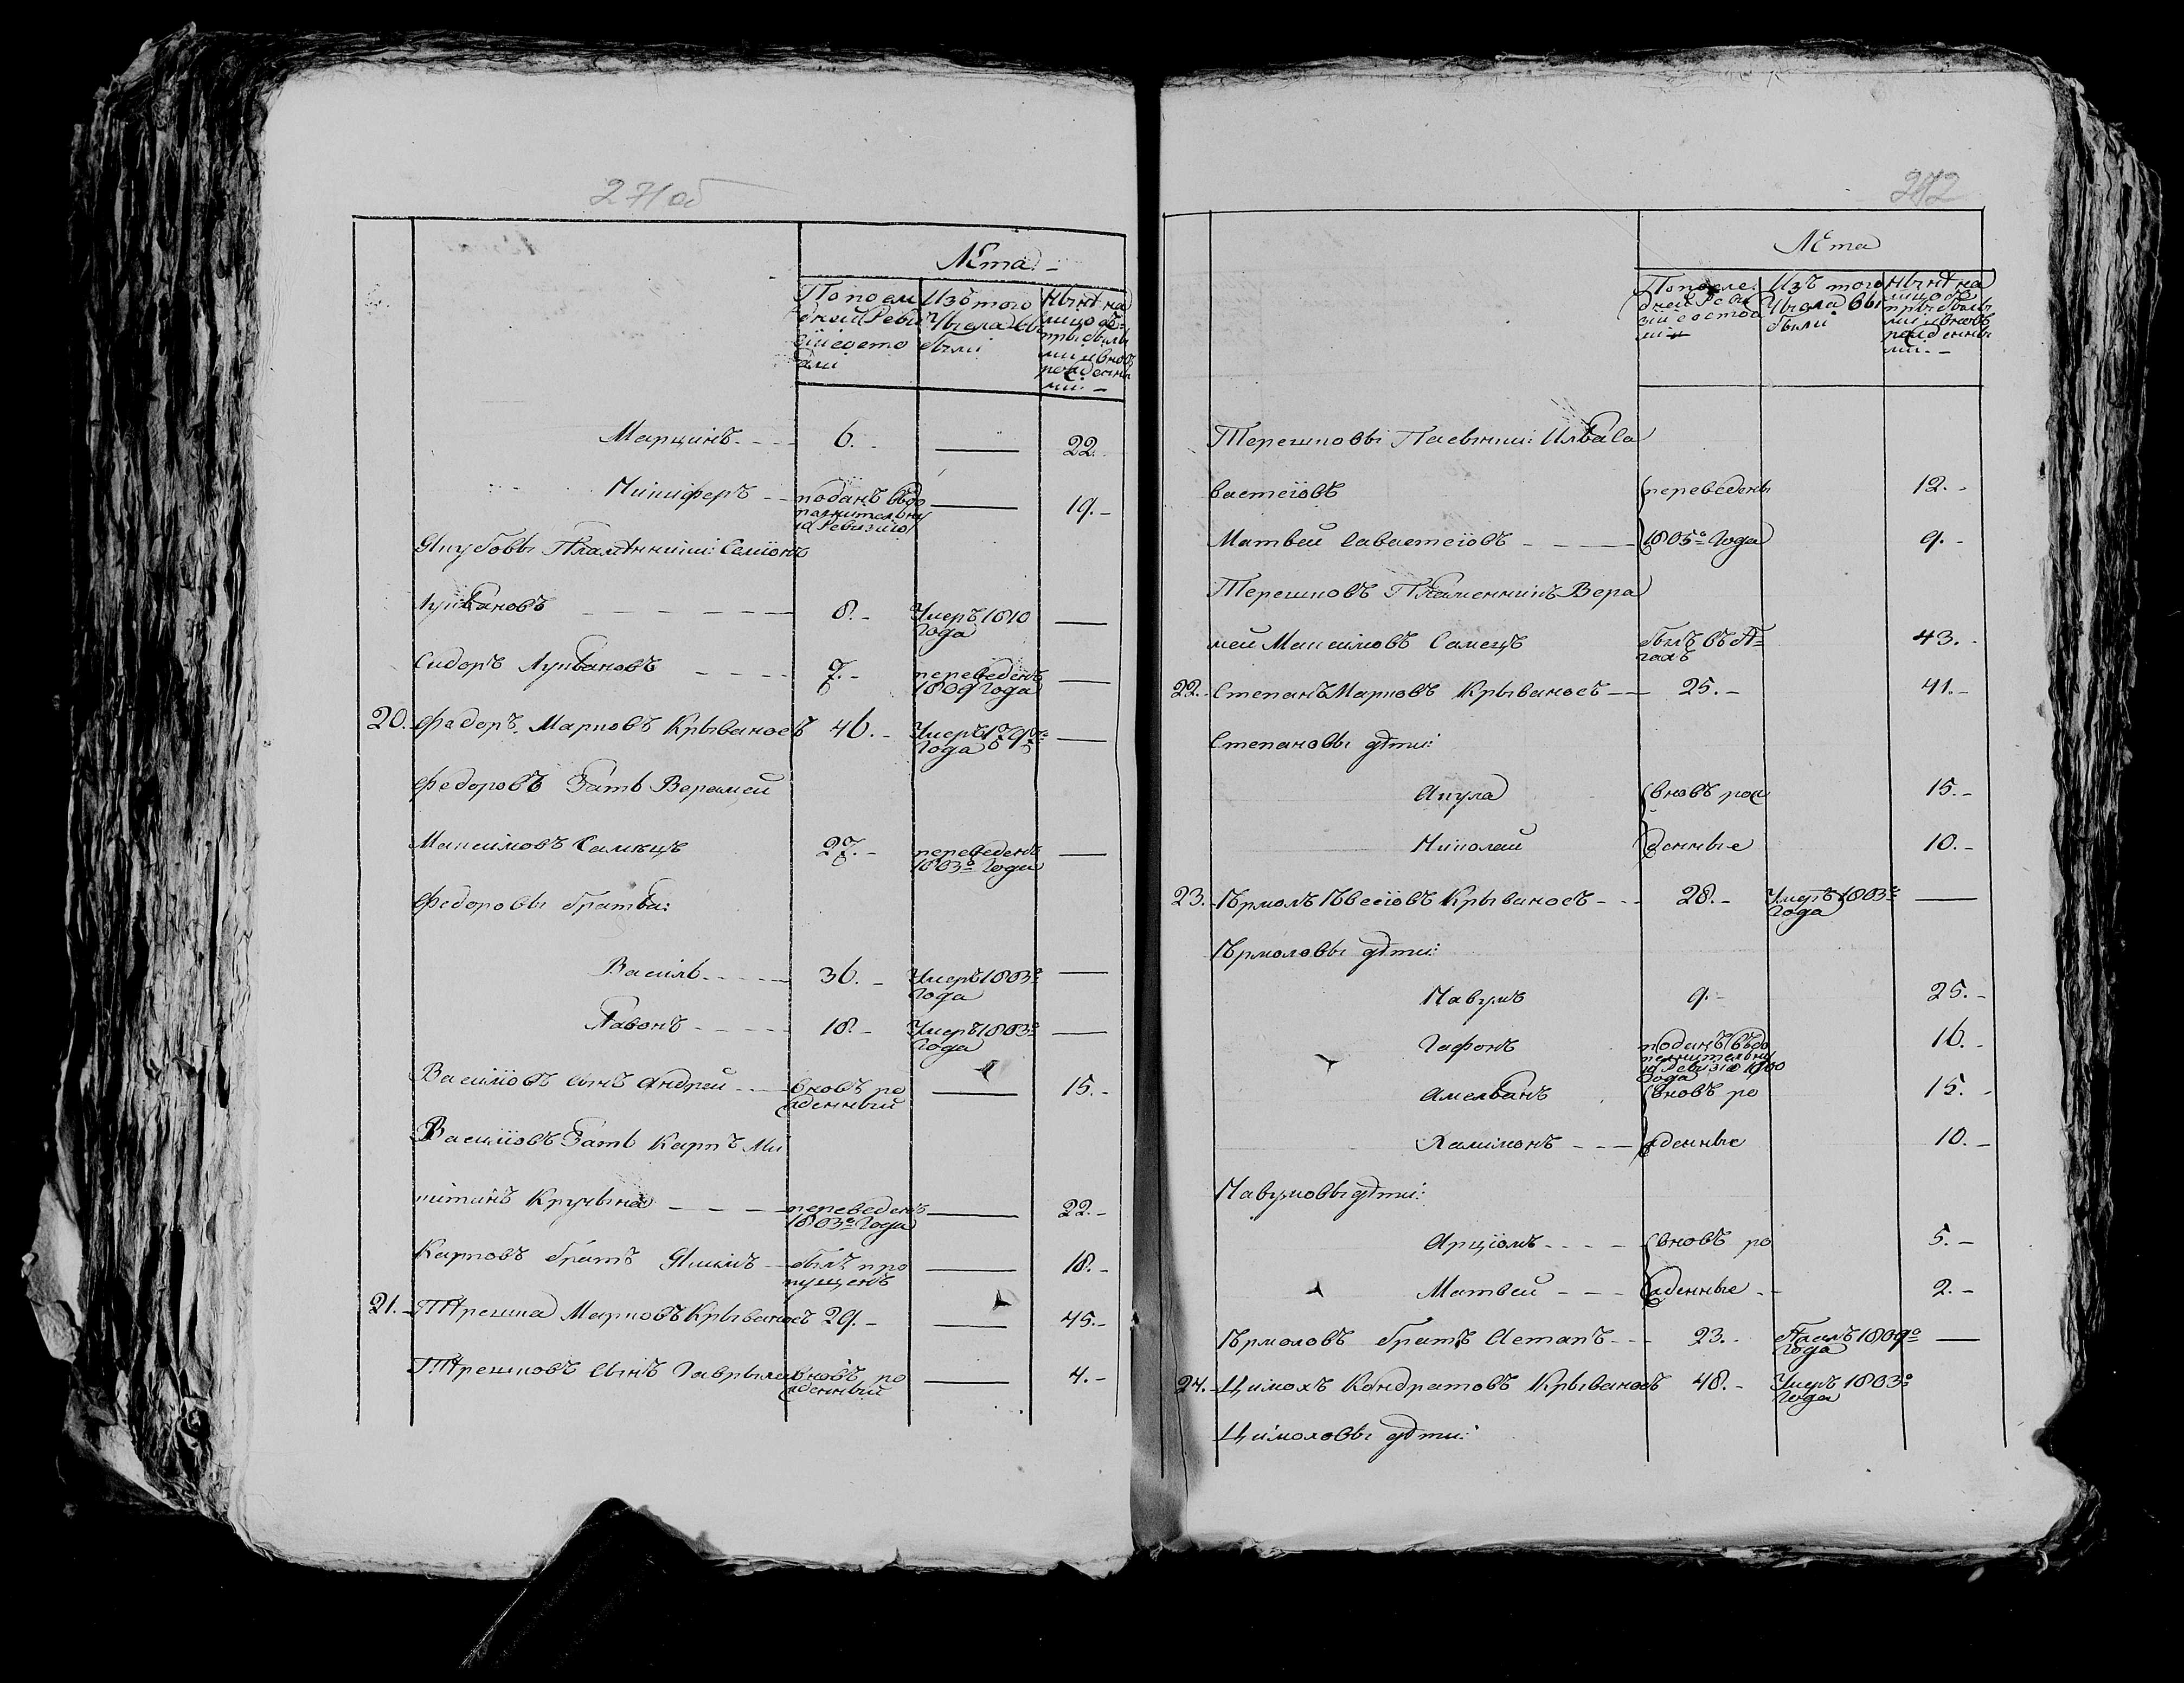 271об
Лѣта
По после
дней Реви
зіи состо
яли
Изъ того
числа вы
были
Нынѣ на
лицо съ
прибылы
ми и вновь
рожденны
ми.
Марцинъ 6. — 22.
Никиферъ — поданъ въ до
полнительну
ю Ревизію — 19.
Якубовы Пламѣнники: Семіонъ
Лукьяновъ 8. Умеръ 1810
года —
Сидоръ Лукьяновъ 7. переведенъ
1809 года —
20. Федоръ Марковъ Крываносъ 46. Умеръ
года —
Федоровъ Зать Верамей
Максимовъ Самецъ 27. переведенъ
1803о года —
Федоровы братья:
Василь 36. Умеръ 1803о
года —
Лавонъ 18. Умеръ 1803о
года —
Василіовъ сынъ Андрей вновь ро
жденный — 15.
Василіовъ Зать Карпъ Ми
китинъ Кручына переведенъ
1803о года — 22.
Карповъ братъ Якимъ былъ про
пущенъ — 18.
21. Терешка Марковъ Крываносъ 29. — 45.
Терешковъ сынъ Гаврыла вновь ро
жденный — 4.
272
Лѣта
По после
дней Реви
зіи состоя
ли
Изъ того
числа вы
были
Нынѣ на
лицо съ
прибылы
ми и вновь
рожденны
ми.
Терешковы Пасынки: Илья Са
вастеіовъ переведены 12.
Матвей Савастеіовъ 1805о года 9.
Терешковъ Пламенникъ Вера
мей Максимовъ Самецъ былъ въ бѣ
гахъ 43.
22. Степанъ Марковъ Крываносъ 25. 41.
Степановы дѣти:
Акула вновь рож 15.
Николай денные 10.
23. Ярмолъ Явсіовъ Крываносъ 28. Умеръ 1803о
года —
Ярмоловы дѣти:
Навумъ 9. 25.
Гафонъ поданъ въ до
полнительну
ю Ревизію 1800
года 16.
Амельянъ вновь ро 15.
Халимонъ жденные 10.
Навумовы дѣти:
Арціомъ вновь ро 5.
Матвей жденные 2.
Ярмоловъ братъ Астапъ 23. бѣжалъ 1809о
года —
24. Цимохъ Кондратовъ Крываносъ 48. Умеръ 1803о
года
Цимоховы дѣти: